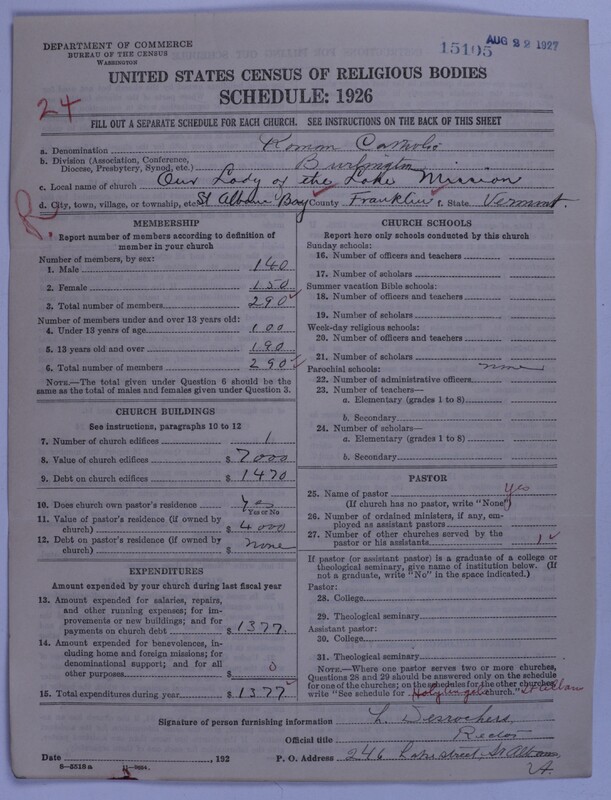 DEPARTMENT OF COMMERCE
BUREAU OF THE CENSUS
WASHINGTON
15105
AUG 22 1927
UNITED STATES CENSUS OF RELIGIOUS BODIES
SCHEDULE: 1926
24
FILL OUT A SEPARATE SCHEDULE FOR EACH CHURCH. SEE INSTRUCTIONS ON THE BACK OF THIS SHEET
a. Denomination Roman Catholic
b. Division (Association, Conference, Diocese, Presbytery, Synod, etc.) Burlington
c. Local name of church Our Lady of the Lake Mission
d. City, town, village, or township, etc. St Albans Bay County Franklin f. State Vermont.
R
MEMBERSHIP
Report number of members according to definition of
member in your church
Number of members, by sex:
1. Male 140
2. Female 150
3. Total number of members 290
Number of members under and over 13 years old:
4. Under 13 years of age 100
5. 13 years old and over 190
6. Total number of members 290
NOTE.—The total given under Question 6 should be the
same as the total of males and females given under Question 3.
CHURCH BUILDINGS
See instructions, paragraphs 10 to 12
7. Number of church edifices 1
8. Value of church edifices $7000
9. Debt on church edifices $1470
10. Does church own pastor's residence Yes
Yes or No
11. Value of pastor's residence (if owned by
church) $4000
12. Debt on pastor's residence (if owned by
church) $none
EXPENDITURES
Amount expended by your church during last fiscal year
13. Amount expended for salaries, repairs,
and other running expenses; for im-
provements or new buildings; and for
payments on church debt $1377.
14. Amount expended for benevolences, in-
cluding home and foreign missions; for
denominational support; and for all
other purposes $0
15. Total expenditures during year $1377
CHURCH SCHOOLS
Report here only schools conducted by this church
Sunday schools:
16. Number of officers and teachers
17. Number of scholars
Summer vacation Bible schools:
18. Number of officers and teachers
19. Number of scholars
Week-day religious schools:
20. Number of officers and teachers
21. Number of scholars
Parochial schools: none
22. Number of administrative officers
23. Number of teachers—
a. Elementary (grades 1 to 8)
b. Secondary
24. Number of scholars—
a. Elementary (grades 1 to 8)
b. Secondary
PASTOR
25. Name of pastor yes
(If church has no pastor, write "None")
26. Number of ordained ministers, if any, em-
ployed as assistant pastors
27. Number of other churches served by the
pastor or his assistants 1
If pastor (or assistant pastor) is a graduate of a college or
theological seminary, give name of institution below. (If
not a graduate, write "No" in the space indicated.)
Pastor:
28. College
29. Theological seminary
Assistant pastor:
30. College
31. Theological seminary
NOTE.—Where one pastor serves two or more churches,
Questions 28 and 29 should be answered only on the schedule
for one of the churches; on the schedules for the other churches,
write "See schedule for Holy Angels church." St Albans
Signature of person furnishing information L. Desrochers,
Official title Rector
Date , 192 P. O. Address 246 Lake street, St Albans,
Vt.
8—5518a